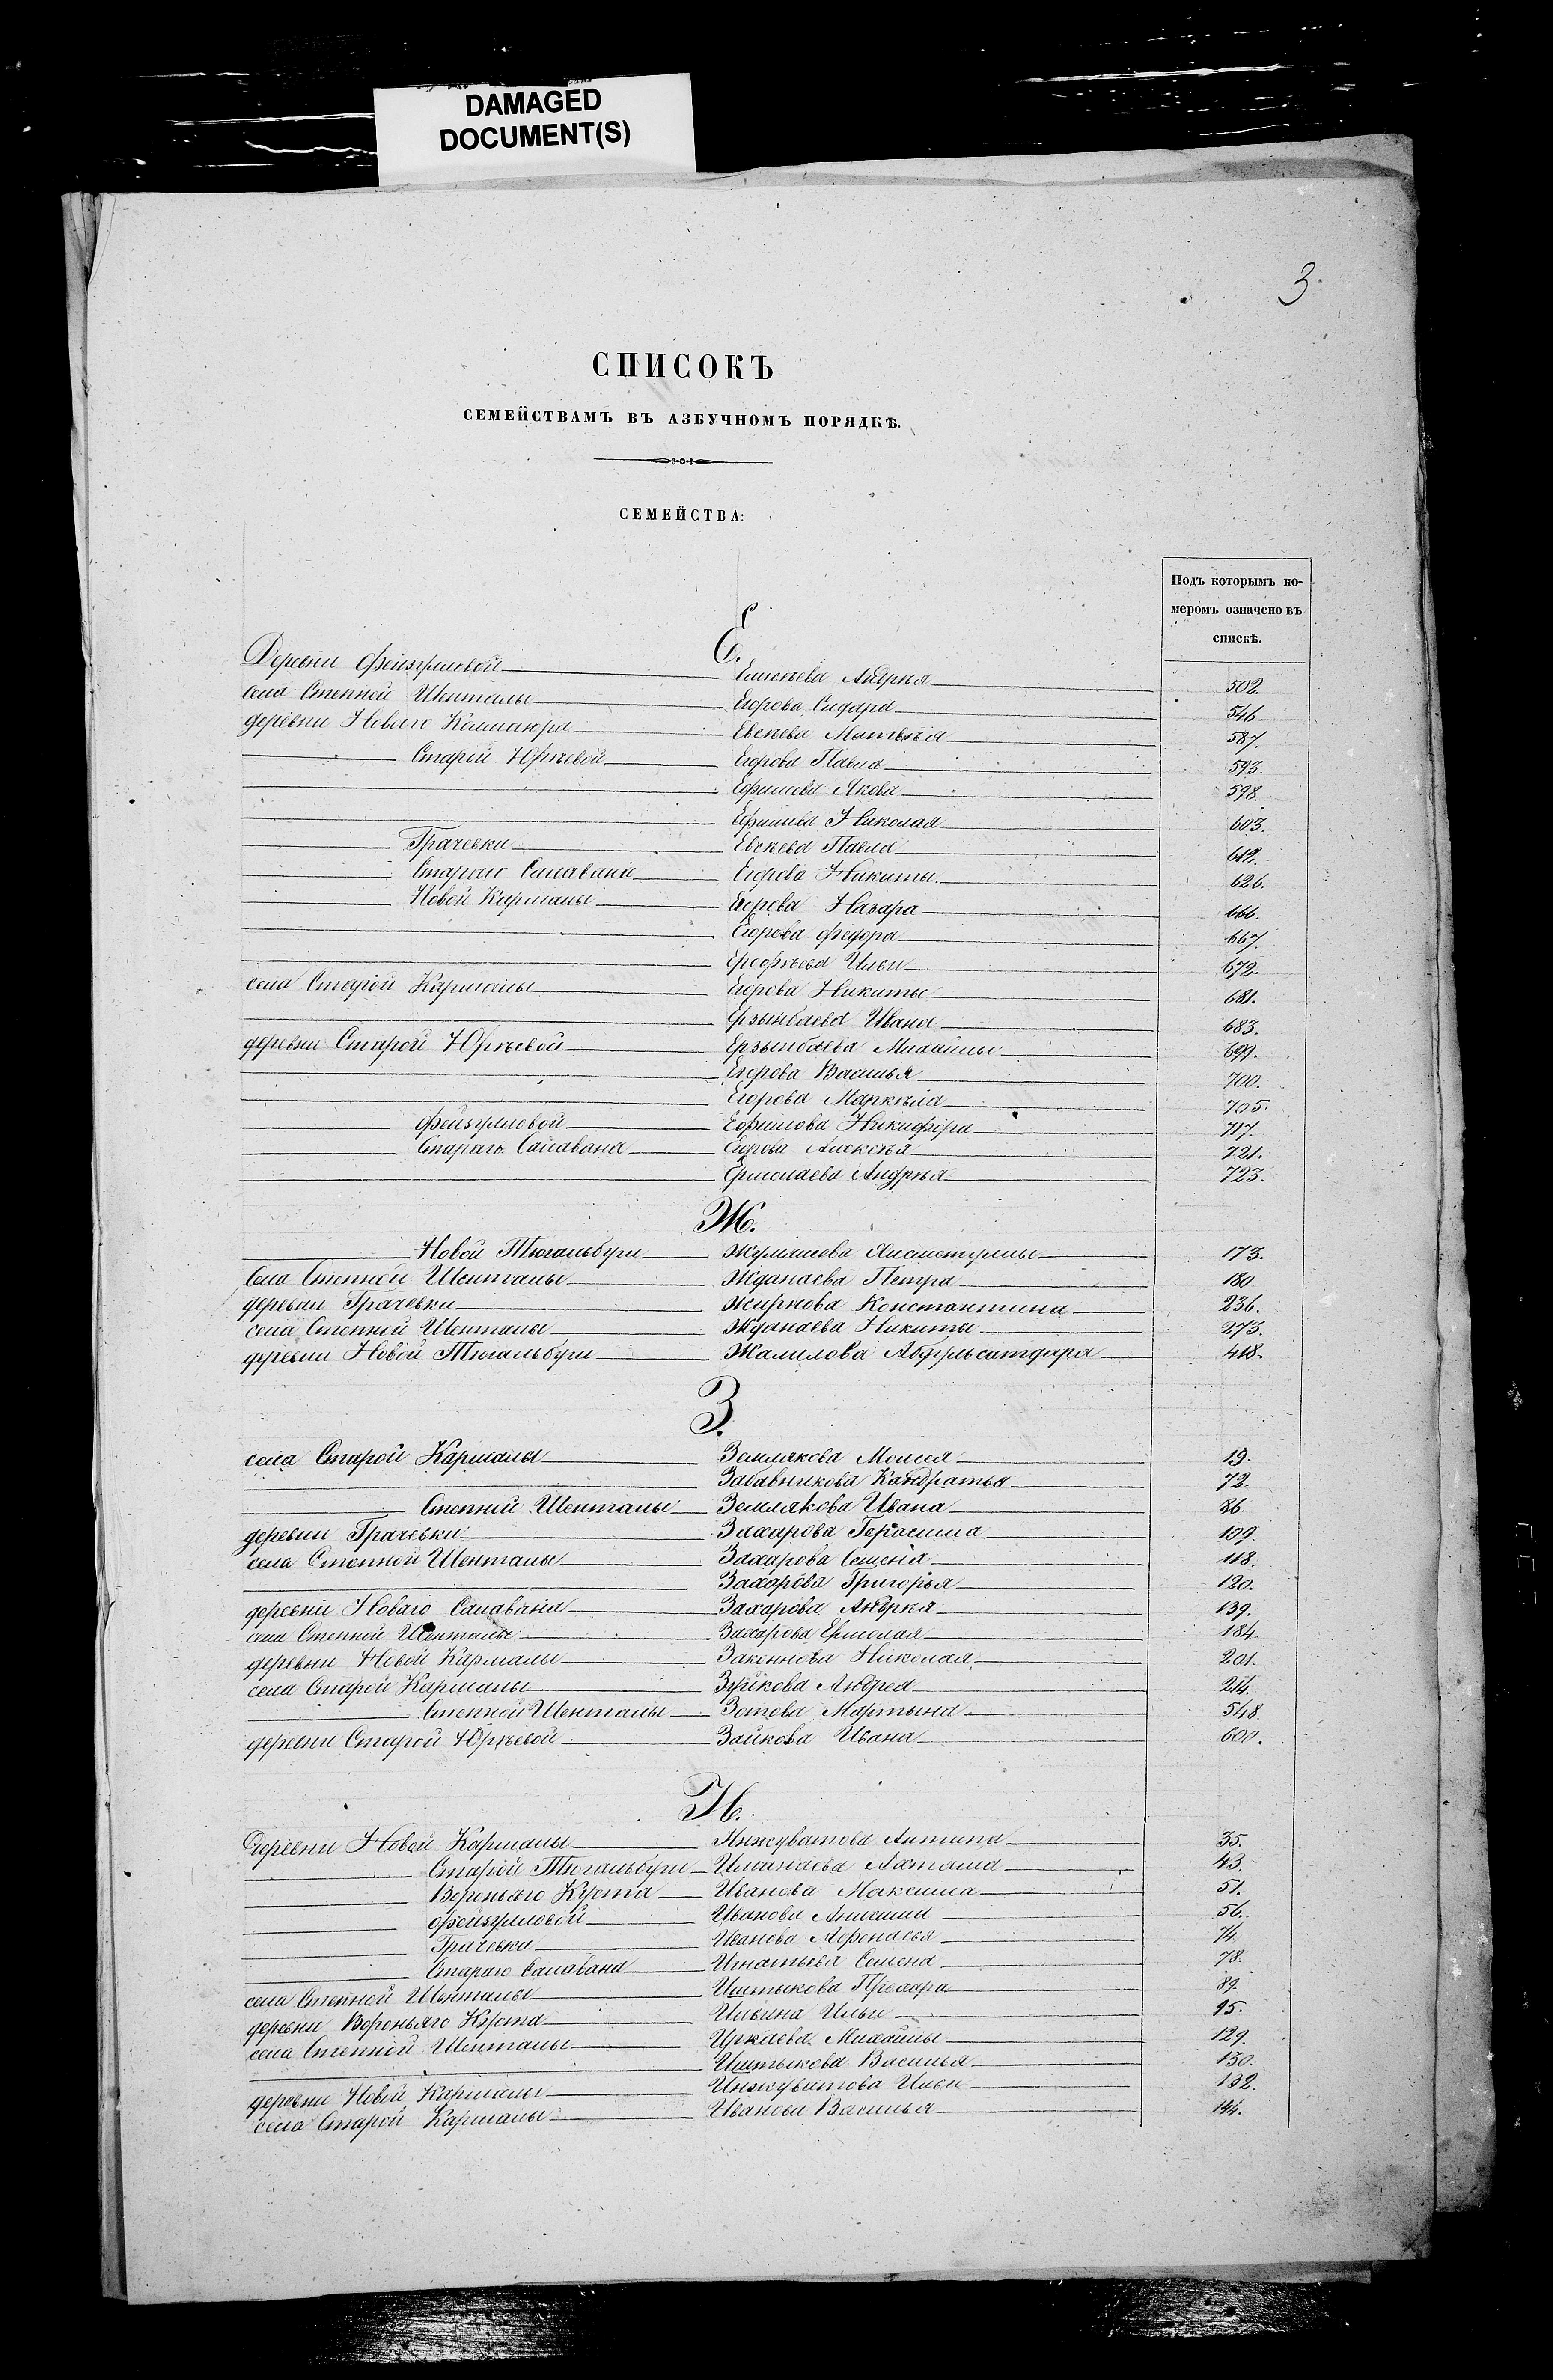 DAMAGED
DOCUMENT(S)
3
СПИСОКЪ
СЕМЕЙСТВАМЪ ВЪ АЗБУЧНОМЪ ПОРЯДКѢ.
СЕМЕЙСТВА:
Подъ которымъ но-
меромъ означено въ
спискѣ.
Е.
Деревни Фейзулловой Андрея 502.
села Степной Шенталы Егорова Сидора 546.
деревни Новаго Евсѣева Матвѣя 587.
Старой Юрѣевой Егорова Павла 593.
Ефимова Якова 598.
Ефимова Николая 603.
Грачевки Евсѣева Павла 612.
Стараго Салавана Егорова Никиты 626.
Новой Кармалы Егорова Назара 666.
Егорова Федора 667.
Ерофѣева Ильи 672.
села Старой Кармалы Егорова Никиты 681.
Ерзынбаева Ивана 683.
деревни Старой Юрѣевой Ерзынбаева Михайлы 699.
Егорова Василья 700.
Егорова Маркѣла 705.
Фейзулловой Ефимова Никифора 717.
Стараго Салавана Егорова Алексѣя 721.
Ермолаева Андрѣя 723.
Ж.
Новой Тюгальбуги 173.
Села Степной Шенталы Жданаева Петра 180
деревни Грачевки Жирнова Константина 236.
села Степной Шенталы Жданаева Никиты 273.
деревни Новой Тюгальбуги Жалилова Абдульсатдара 418.
З.
села Старой Кармалы Землякова Моисея 19.
Забавникова Кандратья 72.
Степной Шенталы Землякова Ивана 86.
деревни Грачевки Захарова Герасима 109.
села Степной Шенталы Захарова Семена 118.
Захарова Григорья 120.
деревни Новаго Салавана Захарова Андрея 139.
села Степной Шенталы Захарова Ермолая 184.
деревни Новой Кармалы Законнова Николая 201.
села Старой Кармалы Зуйкова Андрея 214.
Степной Шенталы Зотова Мартына 548.
деревни Старой Юрѣевой Зайкова Ивана 600.
И.
Деревни Новой Кармалы Инжуватова Антипа 35.
Старой Тюгальбуги 43.
Вороньяго Куста Иванова Максима 51.
Фейзулловой Иванова Анисима 56.
Грачевки Иванова Афонасья 74
Стараго Салавана Игнатьева Семена 78.
села Степной Шенталы Иштыкова Прохора 89.
деревни Вороньяго Куста Ильина Ильи 95.
села Степной Шенталы Иркаева Михайлы 129.
Иштыкова Василья 130.
деревни Новой Кармалы Инжуватова Ильи 132.
села Старой Кармалы Иванова Василья 144.